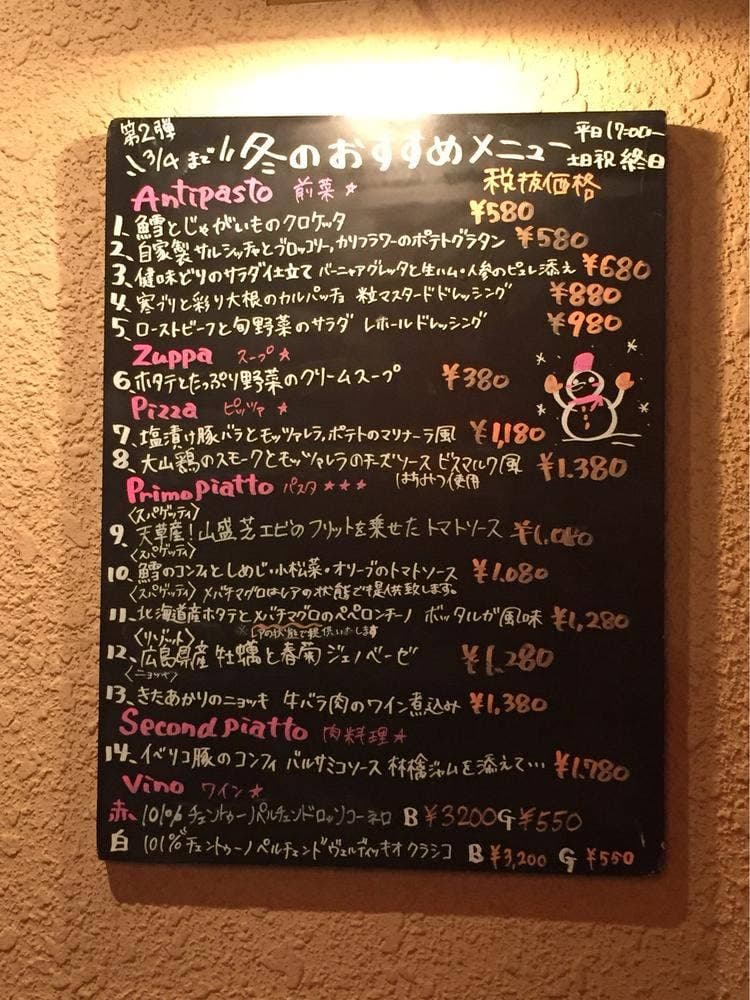 第2弾
\\3/4まで// 冬のおすすめメニュー 平日17:00〜
土日祝 終日
Antipasto 前菜☆ 税抜価格
1. 鱈とじゃがいものクロケッタ ¥580
2. 自家製サルシッチャとブロッコリー,カリフラワーのポテトグラタン ¥580
3. 健味どりのサラダ仕立て バーニャアグレッタと生ハム・人参のピュレ添え ¥680
4. 寒ブリと彩り大根のカルパッチョ 粒マスタードドレッシング ¥880
5. ローストビーフと旬野菜のサラダ レホールドレッシング ¥980
Zuppa スープ☆
6. ホタテとたっぷり野菜のクリームスープ ¥380
Pizza ピッツァ ☆
7. 塩漬け豚バラとモッツァレラ,ポテトのマリナーラ風 ¥1,180
8. 大山鶏のスモークとモッツァレラのチーズソース ビスマルク風 ¥1.380
はちみつ使用
Primo piatto パスタ☆☆☆
〈スパゲッティ〉
9. 天草産!山盛芝エビのフリットを乗せた トマトソース ¥1,080
〈スパゲッティ〉
10. 鱈のコンフィとしめじ・小松菜・オリーブのトマトソース ¥1.080
〈スパゲッティ〉 メバチマグロはレアの状態で提供致します。
11. 北海道産ホタテとメバチマグロのペペロンチーノ ボッタルガ風味 ¥1,280
※レアの状態で提供いたします
〈リゾット〉
12. 広島県産 牡蠣と春菊 ジェノベーゼ ¥1.280
〈ニョッキ〉
13. きたあかりのニョッキ 牛バラ肉のワイン煮込み ¥1,380
Second piatto 肉料理☆
14. イベリコ豚のコンフィ バルサミコソース 林檎ジャムを添えて… ¥1.780
Vino ワイン☆
赤. 101% チェントゥーノペルチェンドロッソコーネロ B ¥3200 G ¥550
白 101% チェントゥーノ ペルチェンドヴェルディッキオ クラシコ B ¥3,200 G ¥550